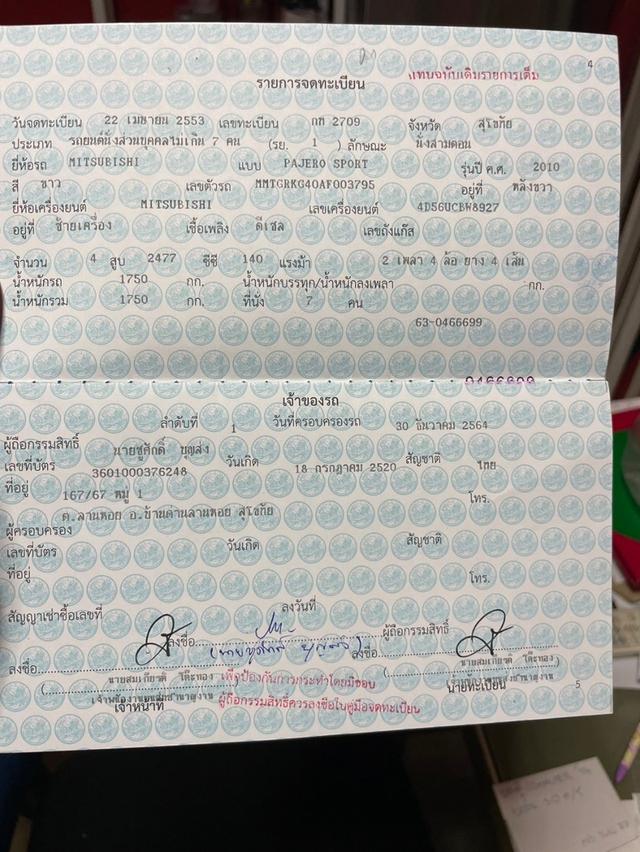 4
แทนฉบับเดิมรายการเต็ม
รายการจดทะเบียน
วันจดทะเบียน 22 เมษายน 2553 เลขทะเบียน กท 2709 จังหวัด สุโขทัย
ประเภท รถยนต์นั่งส่วนบุคคลไม่เกิน 7 คน (รย. 1 ) ลักษณะ นั่งสามตอน
ยี่ห้อรถ MITSUBISHI แบบ PAJERO SPORT รุ่นปี ค.ศ. 2010
สี ขาว เลขตัวรถ MMTGRKG40AF003795 อยู่ที่ หลังขวา
ยี่ห้อเครื่องยนต์ MITSUBISHI เลขเครื่องยนต์ 4D56UCBW8927
อยู่ที่ ซ้ายเครื่อง เชื้อเพลิง ดีเซล เลขถังแก๊ส
จำนวน 4 สูบ 2477 ซีซี 140 แรงม้า 2 เพลา 4 ล้อ ยาง 4 เส้น
น้ำหนักรถ 1750 กก. น้ำหนักบรรทุก/น้ำหนักลงเพลา กก.
น้ำหนักรวม 1750 กก. ที่นั่ง 7 คน
63-0466699
0466699
เจ้าของรถ
ลำดับที่ 1 วันที่ครอบครองรถ 30 ธันวาคม 2564
ผู้ถือกรรมสิทธิ์ นายชูศักดิ์ บุญส่ง
เลขที่บัตร 3601000376248 วันเกิด 18 กรกฎาคม 2520 สัญชาติ ไทย
ที่อยู่ 167/67 หมู่ 1 โทร.
ต.ลานหอย อ.บ้านด่านลานหอย สุโขทัย
ผู้ครอบครอง
เลขที่บัตร วันเกิด สัญชาติ
ที่อยู่ โทร.
สัญญาเช่าซื้อเลขที่ ลงวันที่
ลงชื่อ ผู้ถือกรรมสิทธิ์
(นายชูศักดิ์ บุญส่ง)
ลงชื่อ ลงชื่อ
นายสมเกียรติ โต๊ะทอง นายสมเกียรติ โต๊ะทอง
เพื่อป้องกันการกระทำโดยมิชอบ
เจ้าพนักงานขนส่งชำนาญงาน นายทะเบียน 5
เจ้าหน้าที่ ผู้ถือกรรมสิทธิ์ควรลงชื่อในคู่มือจดทะเบียน